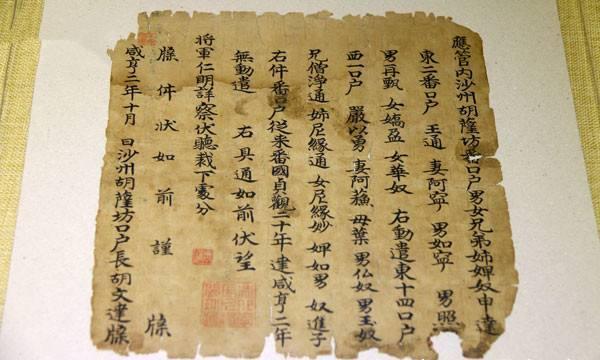 應管內沙州胡蘆坊番口户男女兄弟姉婢奴申達
東二番口户 王通 妻阿寧 男如寧 男照
男再甄 女嬌盈 女華奴 右動遣東十四口户
西一口户 嚴以勇 妻阿蘓 母葉 男仏奴 男玉奴
兄僧淨通 姉尼緣通 女尼緣妙 婢如男 奴進子
右件番口户從来番國貞觀二十年 達咸亨二年
無動遣 右具通如前伏望
將軍仁明詳察伏聽裁下處分
牒件狀如前謹牒
咸亨二年十月 日沙州胡蘆坊口户長胡文達牒